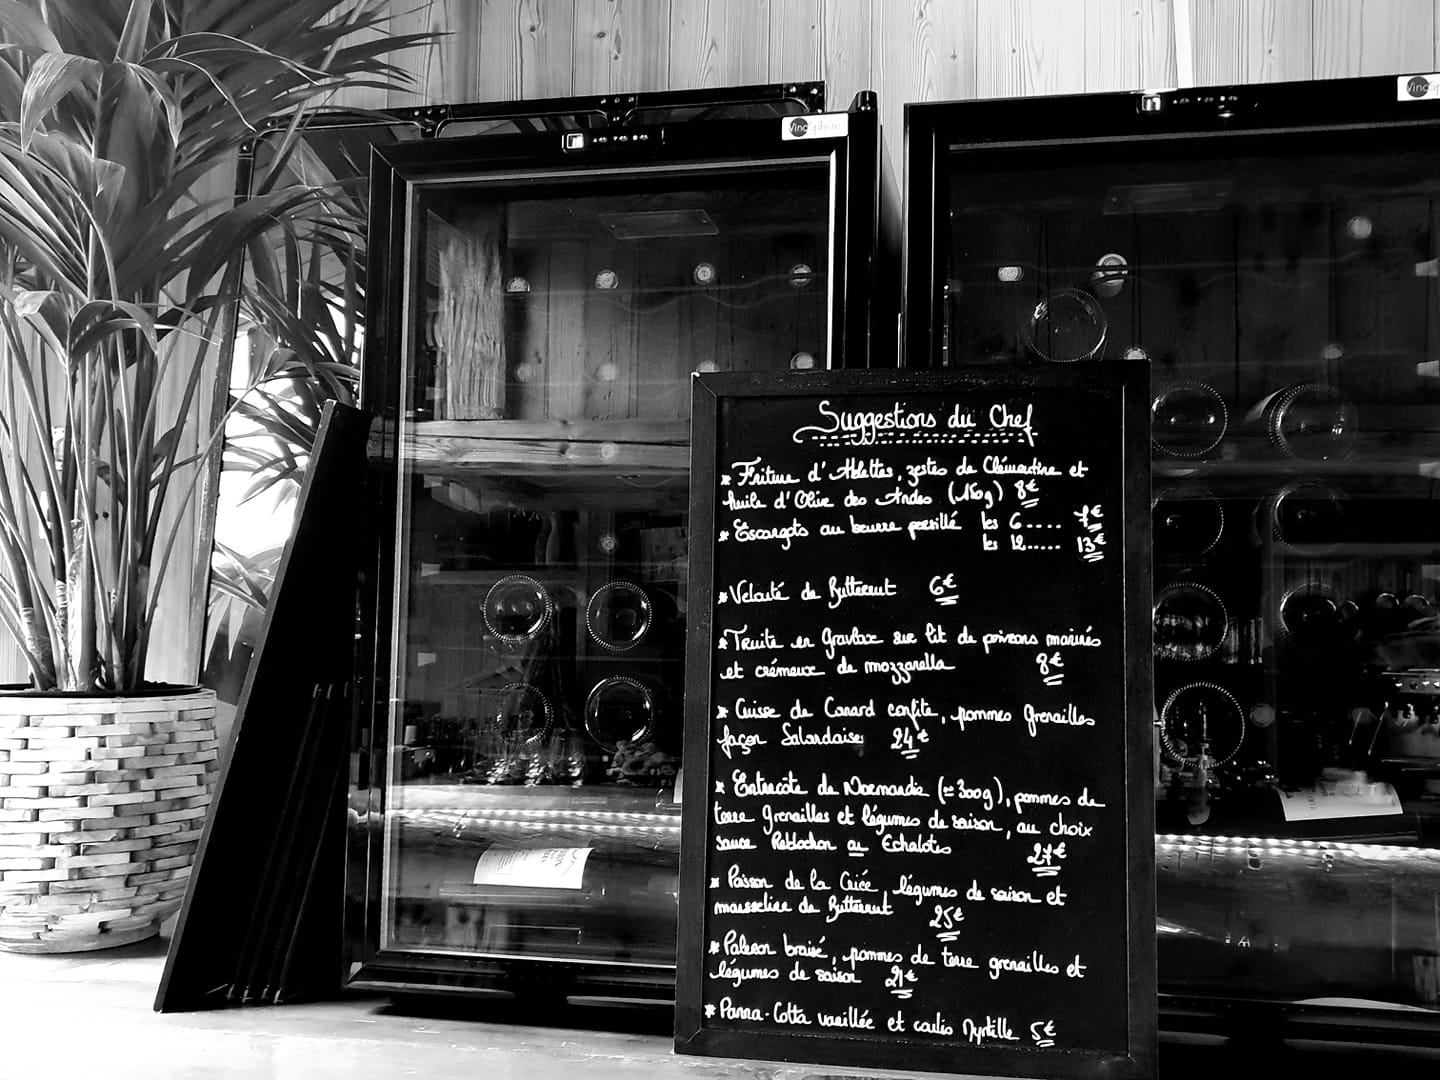 Vinosphère
Suggestions du Chef
* Friture d'Ablettes, zestes de Clémentine et
huile d'Olive des Andes (150g) 8€
* Escargots au beurre persillé les 6..... 7€
les 12..... 13€
* Velouté de Butternut 6€
* Truite en Gravlax sur lit de poivrons marinés
et crémeux de mozzarella 8€
* Cuisse de Canard confite, pommes Grenailles
façon Salardaise 24€
* Entrecôte de Normandie (≃300g), pommes de
terre Grenailles et légumes de saison, au choix
sauce Reblochon ou Echalotes 27€
* Poisson de la Criée, légumes de saison et
mousseline de Butternut 25€
* Paleron braisé, pommes de terre grenailles et
légumes de saison 21€
* Panna-Cotta vanillée et coulis Myrtille 5€